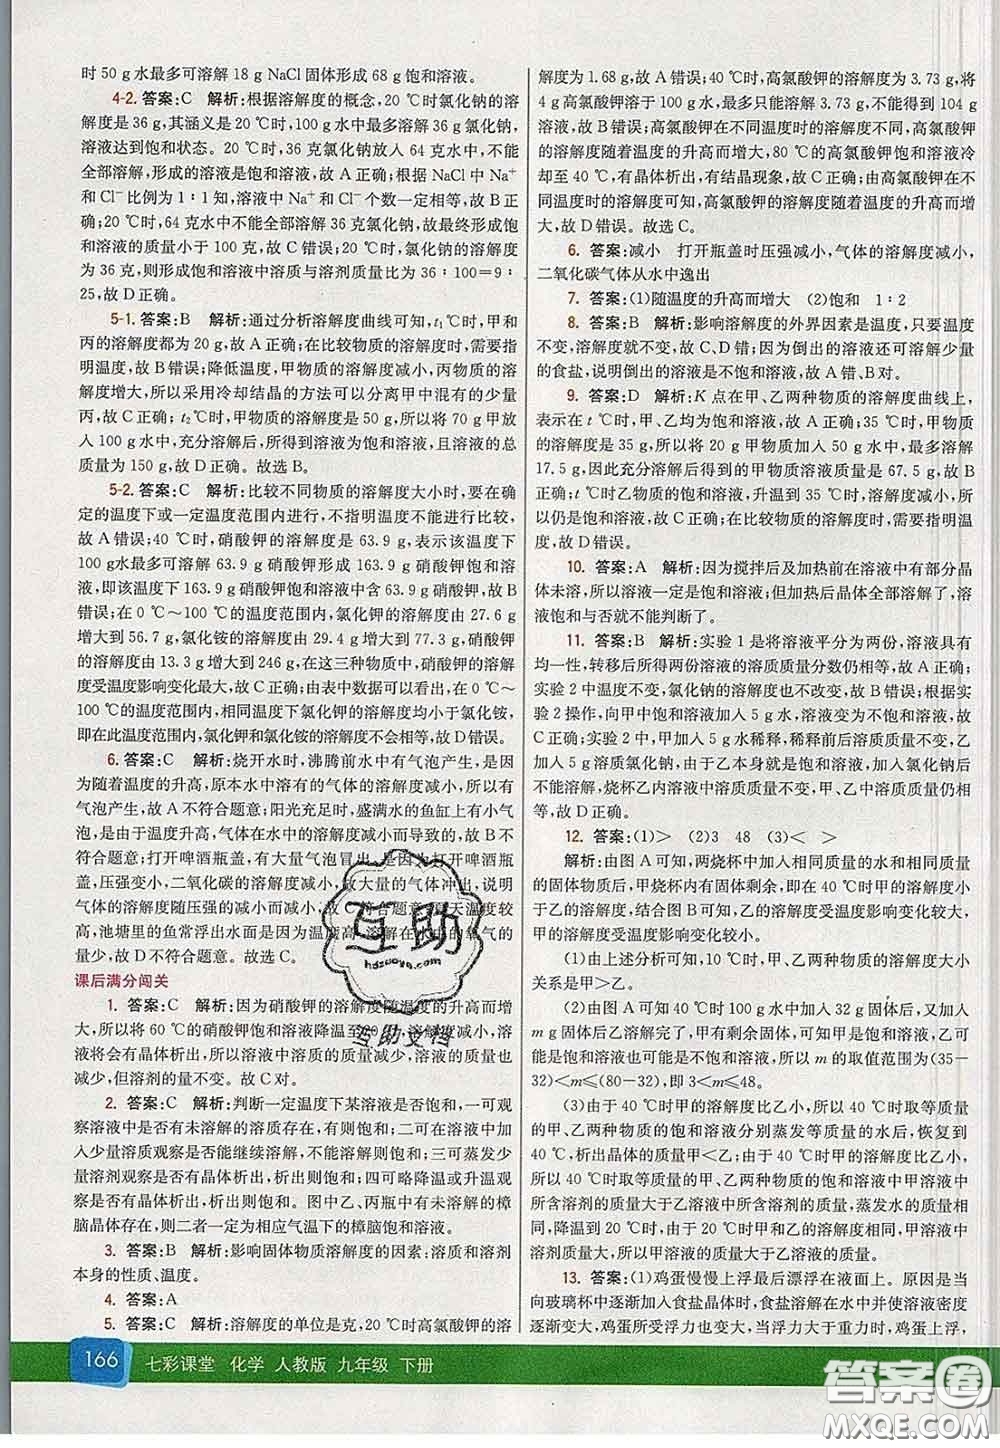 时50 g水最多可溶解18 g NaCl固体形成68 g饱和溶液。
4-2. 答案:C 解析:根据溶解度的概念,20 ℃时氯化钠的溶
解度是36 g,其涵义是20 ℃时,100 g水中最多溶解36 g氯化钠,
溶液达到饱和状态。20 ℃时,36克氯化钠放入64克水中,不能
全部溶解,形成的溶液是饱和溶液,故A正确;根据NaCl中Na⁺
和Cl⁻比例为1∶1知,溶液中Na⁺和Cl⁻个数一定相等,故B正
确;20 ℃时,64克水中不能全部溶解36克氯化钠,故最终形成饱
和溶液的质量小于100克,故C错误;20 ℃时,氯化钠的溶解度
为36克,则形成的饱和溶液中溶质与溶剂质量比为36∶100=9∶
25,故D正确。
5-1. 答案:B 解析:通过分析溶解度曲线可知,t₁℃时,甲和
丙的溶解度都为20 g,故A错误;在比较物质的溶解度时,需要指
明温度,故B错误;降低温度,甲物质的溶解度减小,丙物质的溶
解度增大,所以采用冷却结晶的方法可以分离甲中混有的少量
丙,故C正确;t₂℃时,甲物质的溶解度是50 g,所以将70 g甲放
入100 g水中,充分溶解后,所得到溶液为饱和溶液,且溶液的总
质量为150 g,故D正确。故选B。
5-2. 答案:C 解析:比较不同物质的溶解度大小时,要在确
定的温度下或一定温度范围内进行,不指明温度不能进行比较,
故A错误;40 ℃时,硝酸钾的溶解度是63.9 g,表示该温度下
100 g水最多可溶解63.9 g硝酸钾形成163.9 g硝酸钾饱和溶
液,即该温度下163.9 g硝酸钾饱和溶液中含63.9 g硝酸钾,故B
错误;在0 ℃～100 ℃的温度范围内,氯化钾的溶解度由27.6 g
增大到56.7 g,氯化铵的溶解度由29.4 g增大到77.3 g,硝酸钾
的溶解度由13.3 g增大到246 g,在这三种物质中,硝酸钾的溶解
度受温度影响变化最大,故C正确;由表中数据可以看出,在0 ℃
～100 ℃的温度范围内,相同温度下氯化钾的溶解度均小于氯化铵,
即在此温度范围内,氯化钾和氯化铵的溶解度不会相等,故D错误。
6. 答案:C 解析:烧开水时,沸腾前水中有气泡产生,是因
为随着温度的升高,原本水中溶有的气体的溶解度减小,所以有
气泡产生,故A不符合题意;阳光充足时,盛满水的鱼缸上有小气
泡,是由于温度升高,气体在水中的溶解度减小而导致的,故B不
符合题意;打开啤酒瓶盖,有大量气泡冒出,是因为打开啤酒瓶
盖,压强变小,二氧化碳的溶解度减小,故大量的气体冲出,说明
气体的溶解度随压强的减小而减小,故C符合题意;夏天温度较
高,池塘里的鱼常浮出水面是因为温度高,溶解在水中的氧气的
量少,故D不符合题意。故选C。
课后满分闯关
1. 答案:C 解析:因为硝酸钾的溶解度随温度的升高而增
大,所以将60 ℃的硝酸钾饱和溶液降温至20 ℃,溶解度减小,溶
液中会有晶体析出,所以溶液中溶质的质量减少,溶液的质量也
减少,但溶剂的量不变。故C对。
2. 答案:C 解析:判断一定温度下某溶液是否饱和,一可观
察溶液中是否有未溶解的溶质存在,有则饱和;二可在溶液中加
入少量溶质观察是否能继续溶解,不溶解则饱和;三可蒸发溶液
观察是否有晶体析出,析出则饱和;四可略降低溶液温度观察是
否有晶体析出,析出则饱和。图中乙、丙瓶中有未溶解的樟
脑晶体存在,则二者一定为相应气温下的樟脑饱和溶液。
3. 答案:B 解析:影响固体物质溶解度的因素:溶质和溶剂
本身的性质、温度。
4. 答案:A
5. 答案:C 解析:溶解度的单位是克,20 ℃时高氯酸钾的溶
解度为1.68 g,故A错误;40 ℃时,高氯酸钾的溶解度为3.73 g,将
4 g高氯酸钾溶于100 g水中,最多只能溶解3.73 g,不能得到104 g
溶液,故B错误;高氯酸钾在不同温度时的溶解度不同,高氯酸钾
的溶解度随着温度的升高而增大,80 ℃的高氯酸钾饱和溶液冷
却至40 ℃,有晶体析出,有结晶现象,故C正确;由图表可知,在
不同温度时高氯酸钾的溶解度随着温度的升高而增大,所以溶解
度不同,故D错误。故选C。
6. 答案:减小 打开瓶盖时压强减小,气体的溶解度减小,
二氧化碳气体从水中逸出
7. 答案:(1)随温度的升高而增大 (2)饱和 1∶2
8. 答案:B 解析:影响溶解度的外界因素是温度,只要温度
不变,溶解度就不变,故C、D错;因为倒出的溶液还可溶解少量
的食盐,说明倒出的溶液是不饱和溶液,故A错、B对。
9. 答案:D 解析:K点在甲、乙两种物质的溶解度曲线上,
表示在t ℃时,甲、乙均为饱和溶液,故A正确;35 ℃时,甲物质的
溶解度是35 g,所以将20 g甲物质加入50 g水中,最多溶解
17.5 g,因此充分溶解后得到的甲物质溶液质量是67.5 g,故B正
确;t ℃时乙物质的饱和溶液,升温到35 ℃时,溶解度减小,所
以仍是饱和溶液,故C正确;在比较物质的溶解度时,需要指明温
度,故D错误。
10. 答案:A 解析:因为搅拌后及加热前在溶液中有部分晶
体未溶,所以溶液一定是饱和溶液,但加热后晶体全部溶解了,
溶液饱和与否就不能判断了。
11. 答案:B 解析:实验1是将溶液平分为两份,溶液具有
均一性,转移后所得两份溶液的溶质质量分数仍相等,故A正确;
实验2中温度不变,氯化钠的溶解度也不改变,故B错误;根据实
验2操作,向甲中饱和溶液加入5 g水,溶液变为不饱和溶液,故C
正确;实验2中,甲中加入5 g水稀释,稀释前后溶质质量不变,乙
加入5 g溶质氯化钠,由于乙本身就是饱和溶液,加入氯化钠不能
溶解,烧杯乙内溶液中溶质质量不变,甲、乙中溶质质量仍相
等,故D正确。
12. 答案:(1)> (2)3 48 (3)< >
解析:由图A可知,两烧杯中加入相同质量的水和相同质量
的固体物质后,甲烧杯内有固体剩余,即在40 ℃时甲的溶解度小
于乙的溶解度,结合图B可知,乙的溶解度受温度影响变化较大,
甲的溶解度受温度影响变化较小。
(1)由上述分析可知,10 ℃时,甲、乙两种物质的溶解度大小
关系是甲>乙。
(2)由图A可知40 ℃时100 g水中加入32 g固体后,又加入
m g固体后乙溶解完了,甲有剩余固体,可知甲是饱和溶液,乙可
能是饱和溶液也可能是不饱和溶液,所以m的取值范围为(35-
32)<m≤(80-32),即3<m≤48。
(3)由于40 ℃时甲的溶解度比乙小,所以40 ℃时取等质量
的甲、乙两种物质的饱和溶液分别蒸发等质量的水后,恢复到
40 ℃,析出晶体的质量甲<乙。由于40 ℃时甲的溶解度比乙小,
所以等质量的甲、乙两种物质的饱和溶液中所含溶剂的质量甲溶
液中所含溶剂的质量大于乙溶液中所含溶剂的质量,蒸发水的质
量相同,降温至20 ℃时,由于20 ℃时甲和乙的溶解度相同,甲溶液中
溶剂质量大,所以甲溶液的质量大于乙溶液的质量。
13. 答案:(1)鸡蛋慢慢上浮最后漂浮在液面上。原因是当
向玻璃杯中加入食盐晶体时,食盐溶解在水中使溶液的密度逐
渐增大,鸡蛋所受浮力逐渐增大,当浮力大于重力时,鸡蛋就会
166 七彩课堂 化学 人教版 九年级 下册
互助
hdzuoye.com
互助文档
答案圈
MXQE.COM